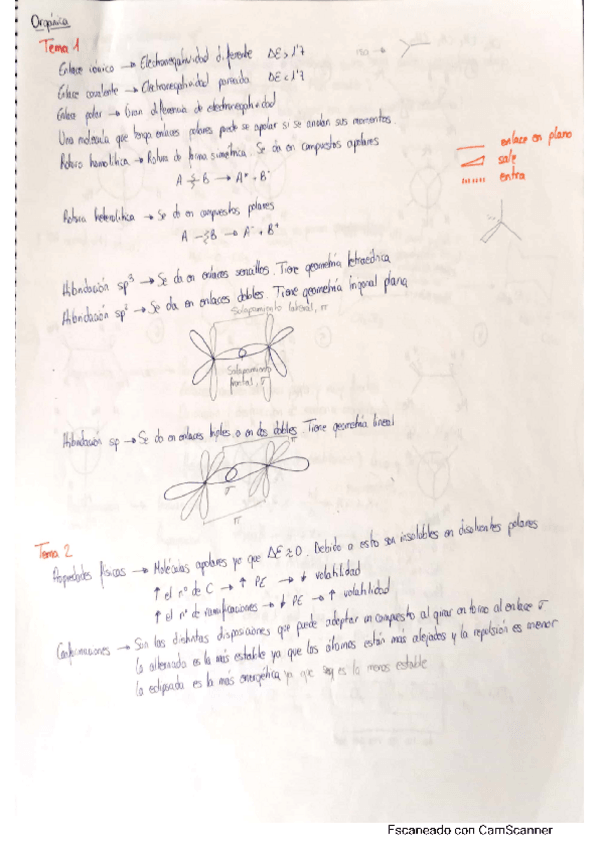 Orgánica
Tema 1
Enlace iónico → Electronegatividad diferente ΔE > 1'7
Enlace covalente → Electronegatividad parecida. ΔE < 1'7
Enlace polar → Gran diferencia de electronegatividad
Una molécula que tenga enlaces polares puede se apolar si se anulan sus momentos.
Rotura homolítica → Rotura de forma simétrica. Se da en compuestos apolares
A B → A· + B·
enlace en plano
sale
entra
Rotura heterolítica → Se da en compuestos polares
A B → A⁻ + B⁺
Hibridación sp³ → Se da en enlaces sencillos. Tiene geometría tetraédrica
Hibridación sp² → Se da en enlaces dobles. Tiene geometría trigonal plana
Solapamiento lateral, π
Solapamiento
frontal, σ
Hibridación sp → Se da en enlaces triples o en dos dobles. Tiene geometría lineal
π
σ
π
Tema 2
Propiedades físicas → Moléculas apolares ya que ΔE ≈ 0. Debido a esto son insolubles en disolventes polares
↑ el nº de C → ↑ PE → ↓ volatilidad
↑ el nº de ramificaciones → ↓ PE → ↑ volatilidad
Conformaciones → Son las distintas disposiciones que puede adoptar un compuesto al girar en torno al enlace σ
La alternada es la más estable ya que los átomos están más alejados y la repulsión es menor
La eclipsada es la más energética, ya que es la menos estable
Escaneado con CamScanner